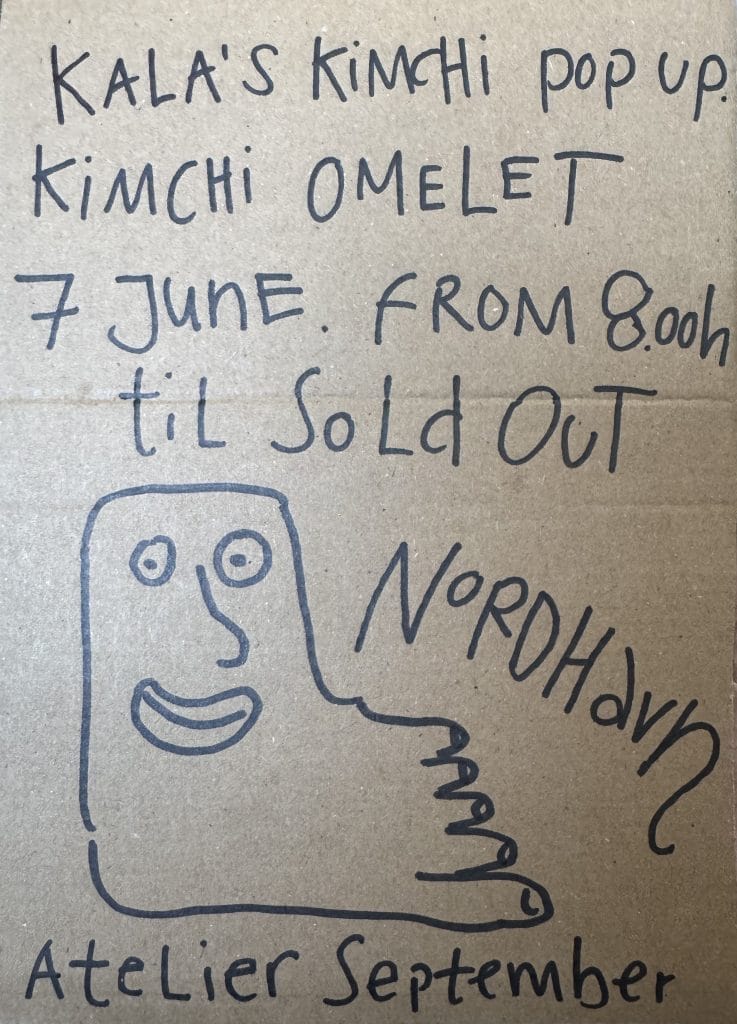 KALA'S KiMCHi POP UP.
KiMCHi OMELET
7 JunE. FROM 8.00h
tiL SoLd OuT
NoRDHavn
AteLier September